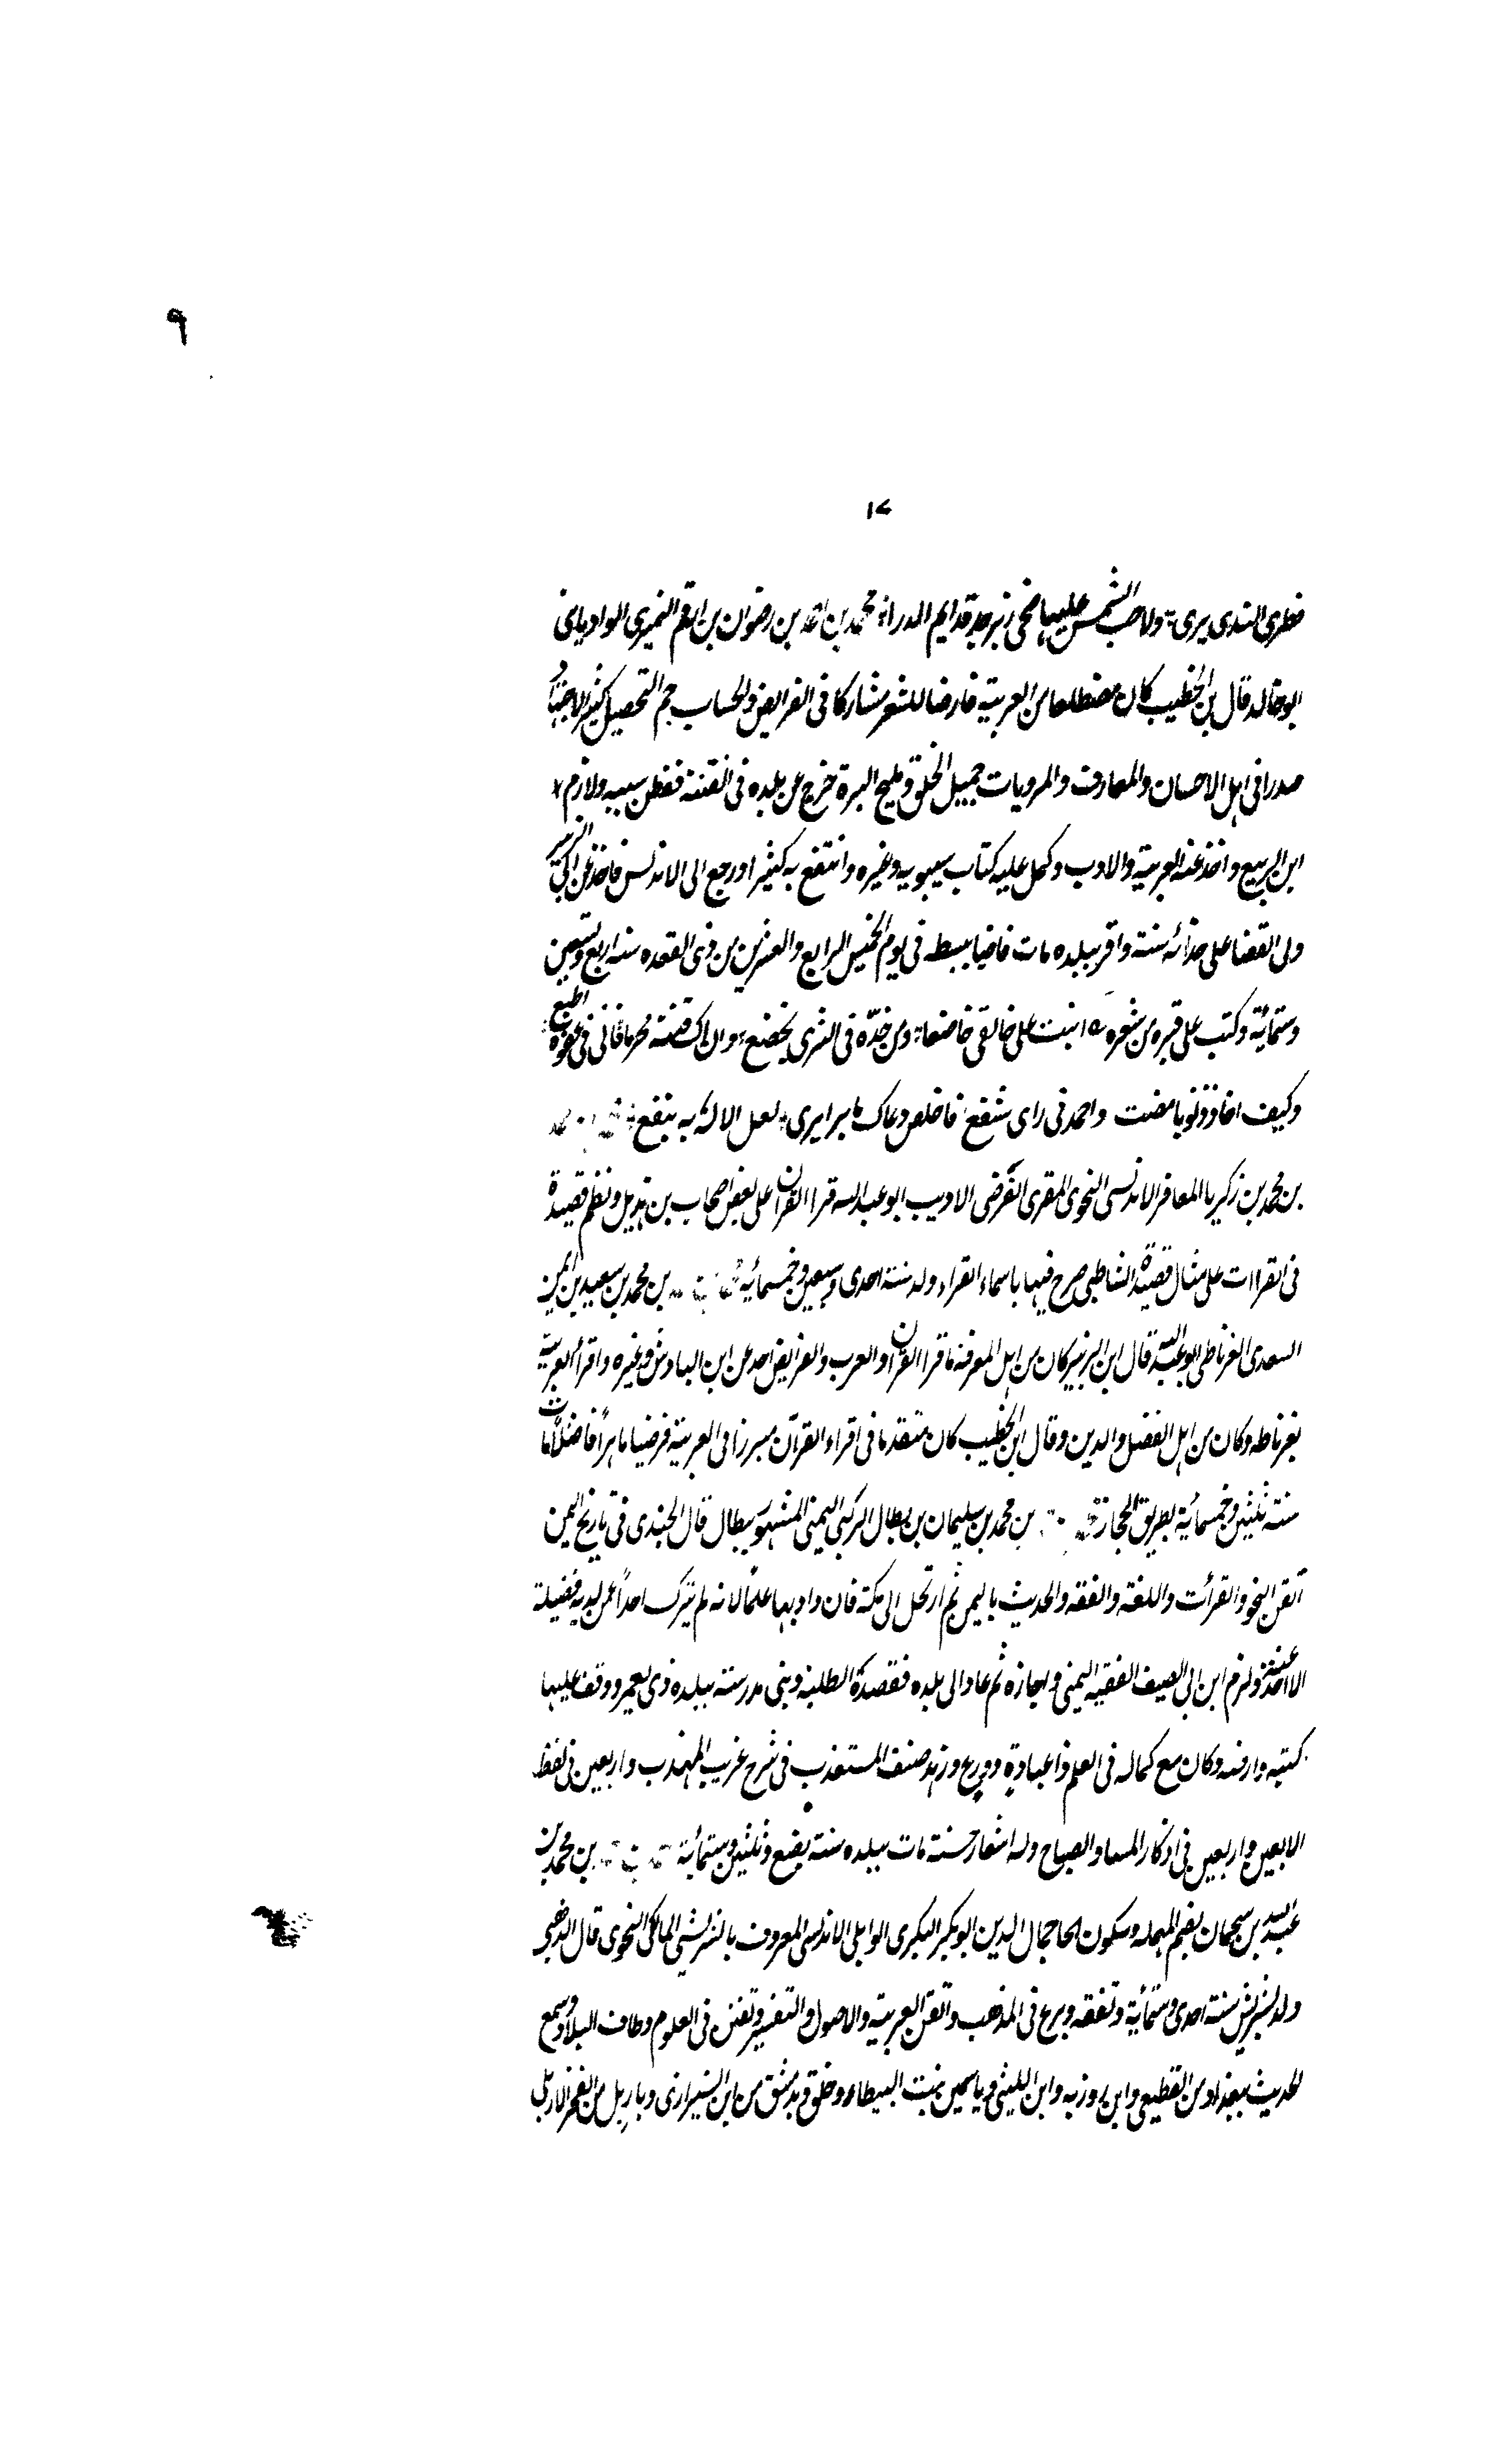 ٩
١٧
قطرى الندى يرى ولاحب الشمس عليها ضحى زبرجد قد ايم الدرا محمد بن احمد بن رضوان بن ارقم النميرى الوادياشى
ابو خالد قال بن الخطيب كان مضطلعا من العربية قارضا للشعر مشاركا فى الفرايض والحساب جم التحصيل كثير الاجتهاد
صدرا فى اهل الاحسان والمعارف والمرويات جميل الخلق مليح البرة خرج عن بلده فى الفتنة فقطن سبته ولازم
ابن ابى الربيع واخذ عنه العربية والادب وكمل عليه كتاب سيبويه وغيره وانتفع به كثيرا ورجع الى الاندلس فاخذ عن ابى الزبير
ولى القضا على حداثه سنه واقر ببلده مات قاضيا ببسطه فى يوم الخميس الرابع والعشرين من ذى القعده سنه اربع وتسعين
وستمائة وكتب على قبره من شعره انبت على خالقى خاضعا ومن خده فى الثرى يخضع وان اك قضيته مجرما فانى فى عفوه اطمع
وكيف اخاف ذنوبا مضت واحمد فى راى شفع فاخلص دعاك يا برايرى لعل الاله به ينفع
بن محمد بن زكريا المعافر الاندلسى النحوى المقرى الفرضى الاديب ابو عبدالله قرا القران على بعض اصحاب بن هذيل ونظم قصيدة
فى القراات على مثال قصيدة الشاطبى صرح فيها باسماء القراء ولد سنة احدى وتسعين وخمسمائية بن محمد بن سعيد بن ايمن
السعدى الغرناطى ابو عبدالله قال ابن الزبير كان من اهل المعرفة قرا القران والعرب والفرايض اخذ عن ابن الباذش وغيره واقرا العربية
بغرناطه وكان من اهل الفضل والدين وقال ابن الخطيب كان متقدما فى اقراء القرآن مبرزا فى العربية فرضيا ماهراً فاضلاً مات
سنة ثلثين وخمسمائية بطريق الحجاز بن محمد بن سليمان بن بطال الركبى اليمنى المشهور ببطال قال الجندى فى تاريخ اليمن
اتقن النحو والقرأت واللغة والفقه والحديث باليمن ثم ارتحل الى مكة فازداد بها علمًا لانه لم يترك احداً ممن لديه فضيلة
الا اخذ عنه ولزم ابن ابى الصيف الفقيه اليمنى واجازه ثم عاد الى بلده فقصدته الطلبة وبنى مدرسة ببلده ذى يعمر ووقف عليها
كتبه وارضه وكان مع كماله فى العلم ذا عبادة وورع وزهد صنف المستعذب فى شرح غريب المهذب واربعين فى لفظ
الاربعين واربعين فى اذكار المساء والصباح وله اشعار حسنة مات ببلده سنة بضع وثلثين وستمائية بن محمد بن
عبدالله بن سجمان بضم المهمله وسكون الحا جمال الدين ابو بكر البكرى الوايلى الاندلسى المعروف بالشريشى المالكى النحوى قال الذهبى
ولد بشريش سنة احدى وستمائية وتفقه وبرع فى المذهب واتقن العربية والاصول والتفسير وتفنن فى العلوم وطاف البلاد وسمع
الحديث ببغداد من القطيعى وابن روزبه وابن الليثى وياسمين بنت البيطار وخلق وبدمشق من ابن الشيرازى وباربل من الفخر الاربلى